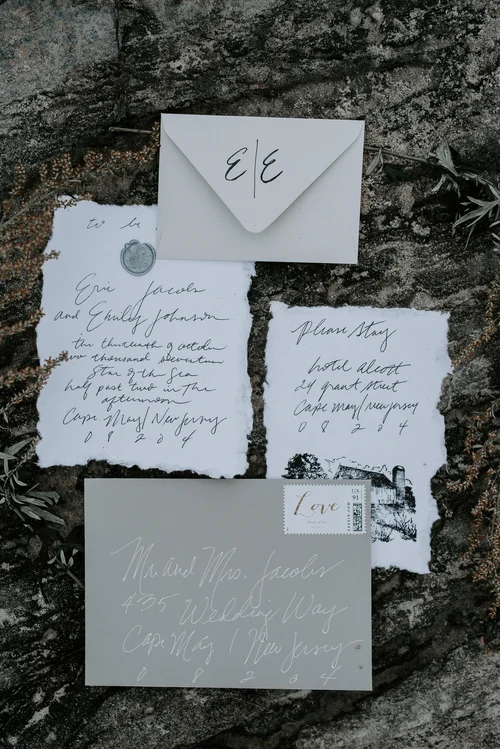 E|E
to be
Eric Jacobs
and Emily Johnson
the thirteenth of october
two thousand seventeen
Star of the Sea
half past two in the
afternoon
Cape May/New Jersey
0 8 2 0 4
please stay
hotel alcott
24 grant street
Cape may/new jersey
0 8 2 0 4
US
91
Love
Mr. and Mrs. Jacobs
435 Wedding Way
Cape May / New Jersey
0 8 2 0 4